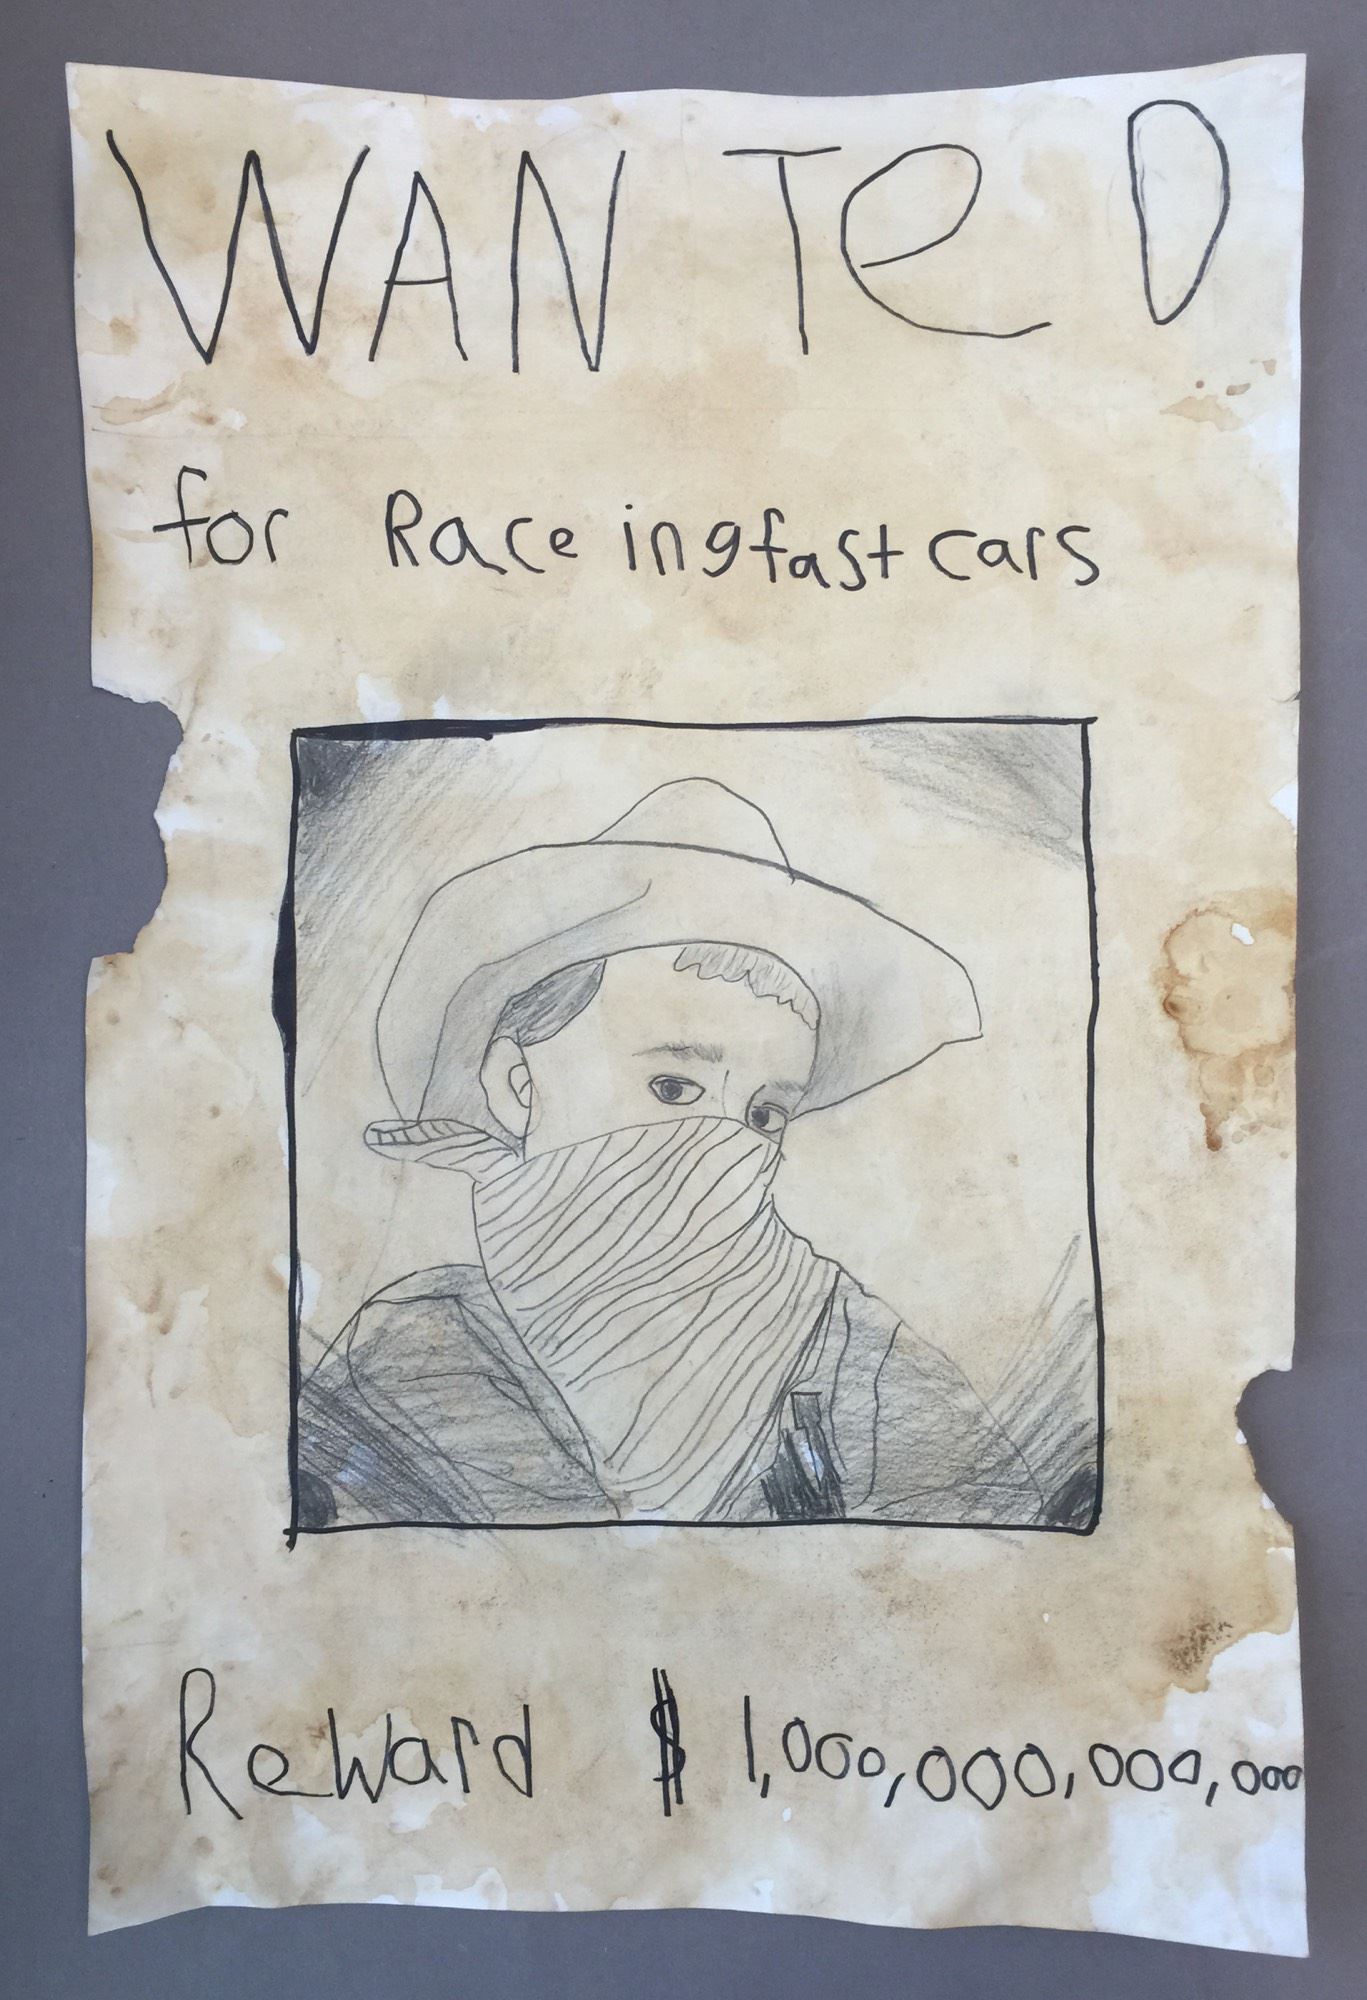 WANTeD
for Raceing fast cars
Reward $ 1,000,000,000,000